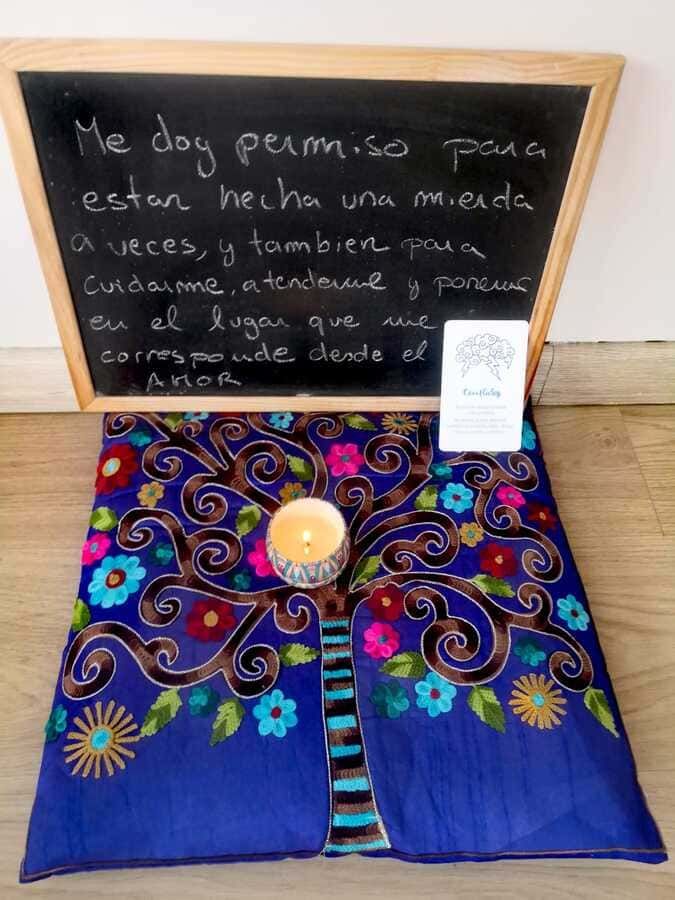 Me doy permiso para
estar hecha una mierda
a veces, y tambien para
cuidarme, atenderme y ponerme
en el lugar que me
corresponde desde el
AMOR
Conflictos